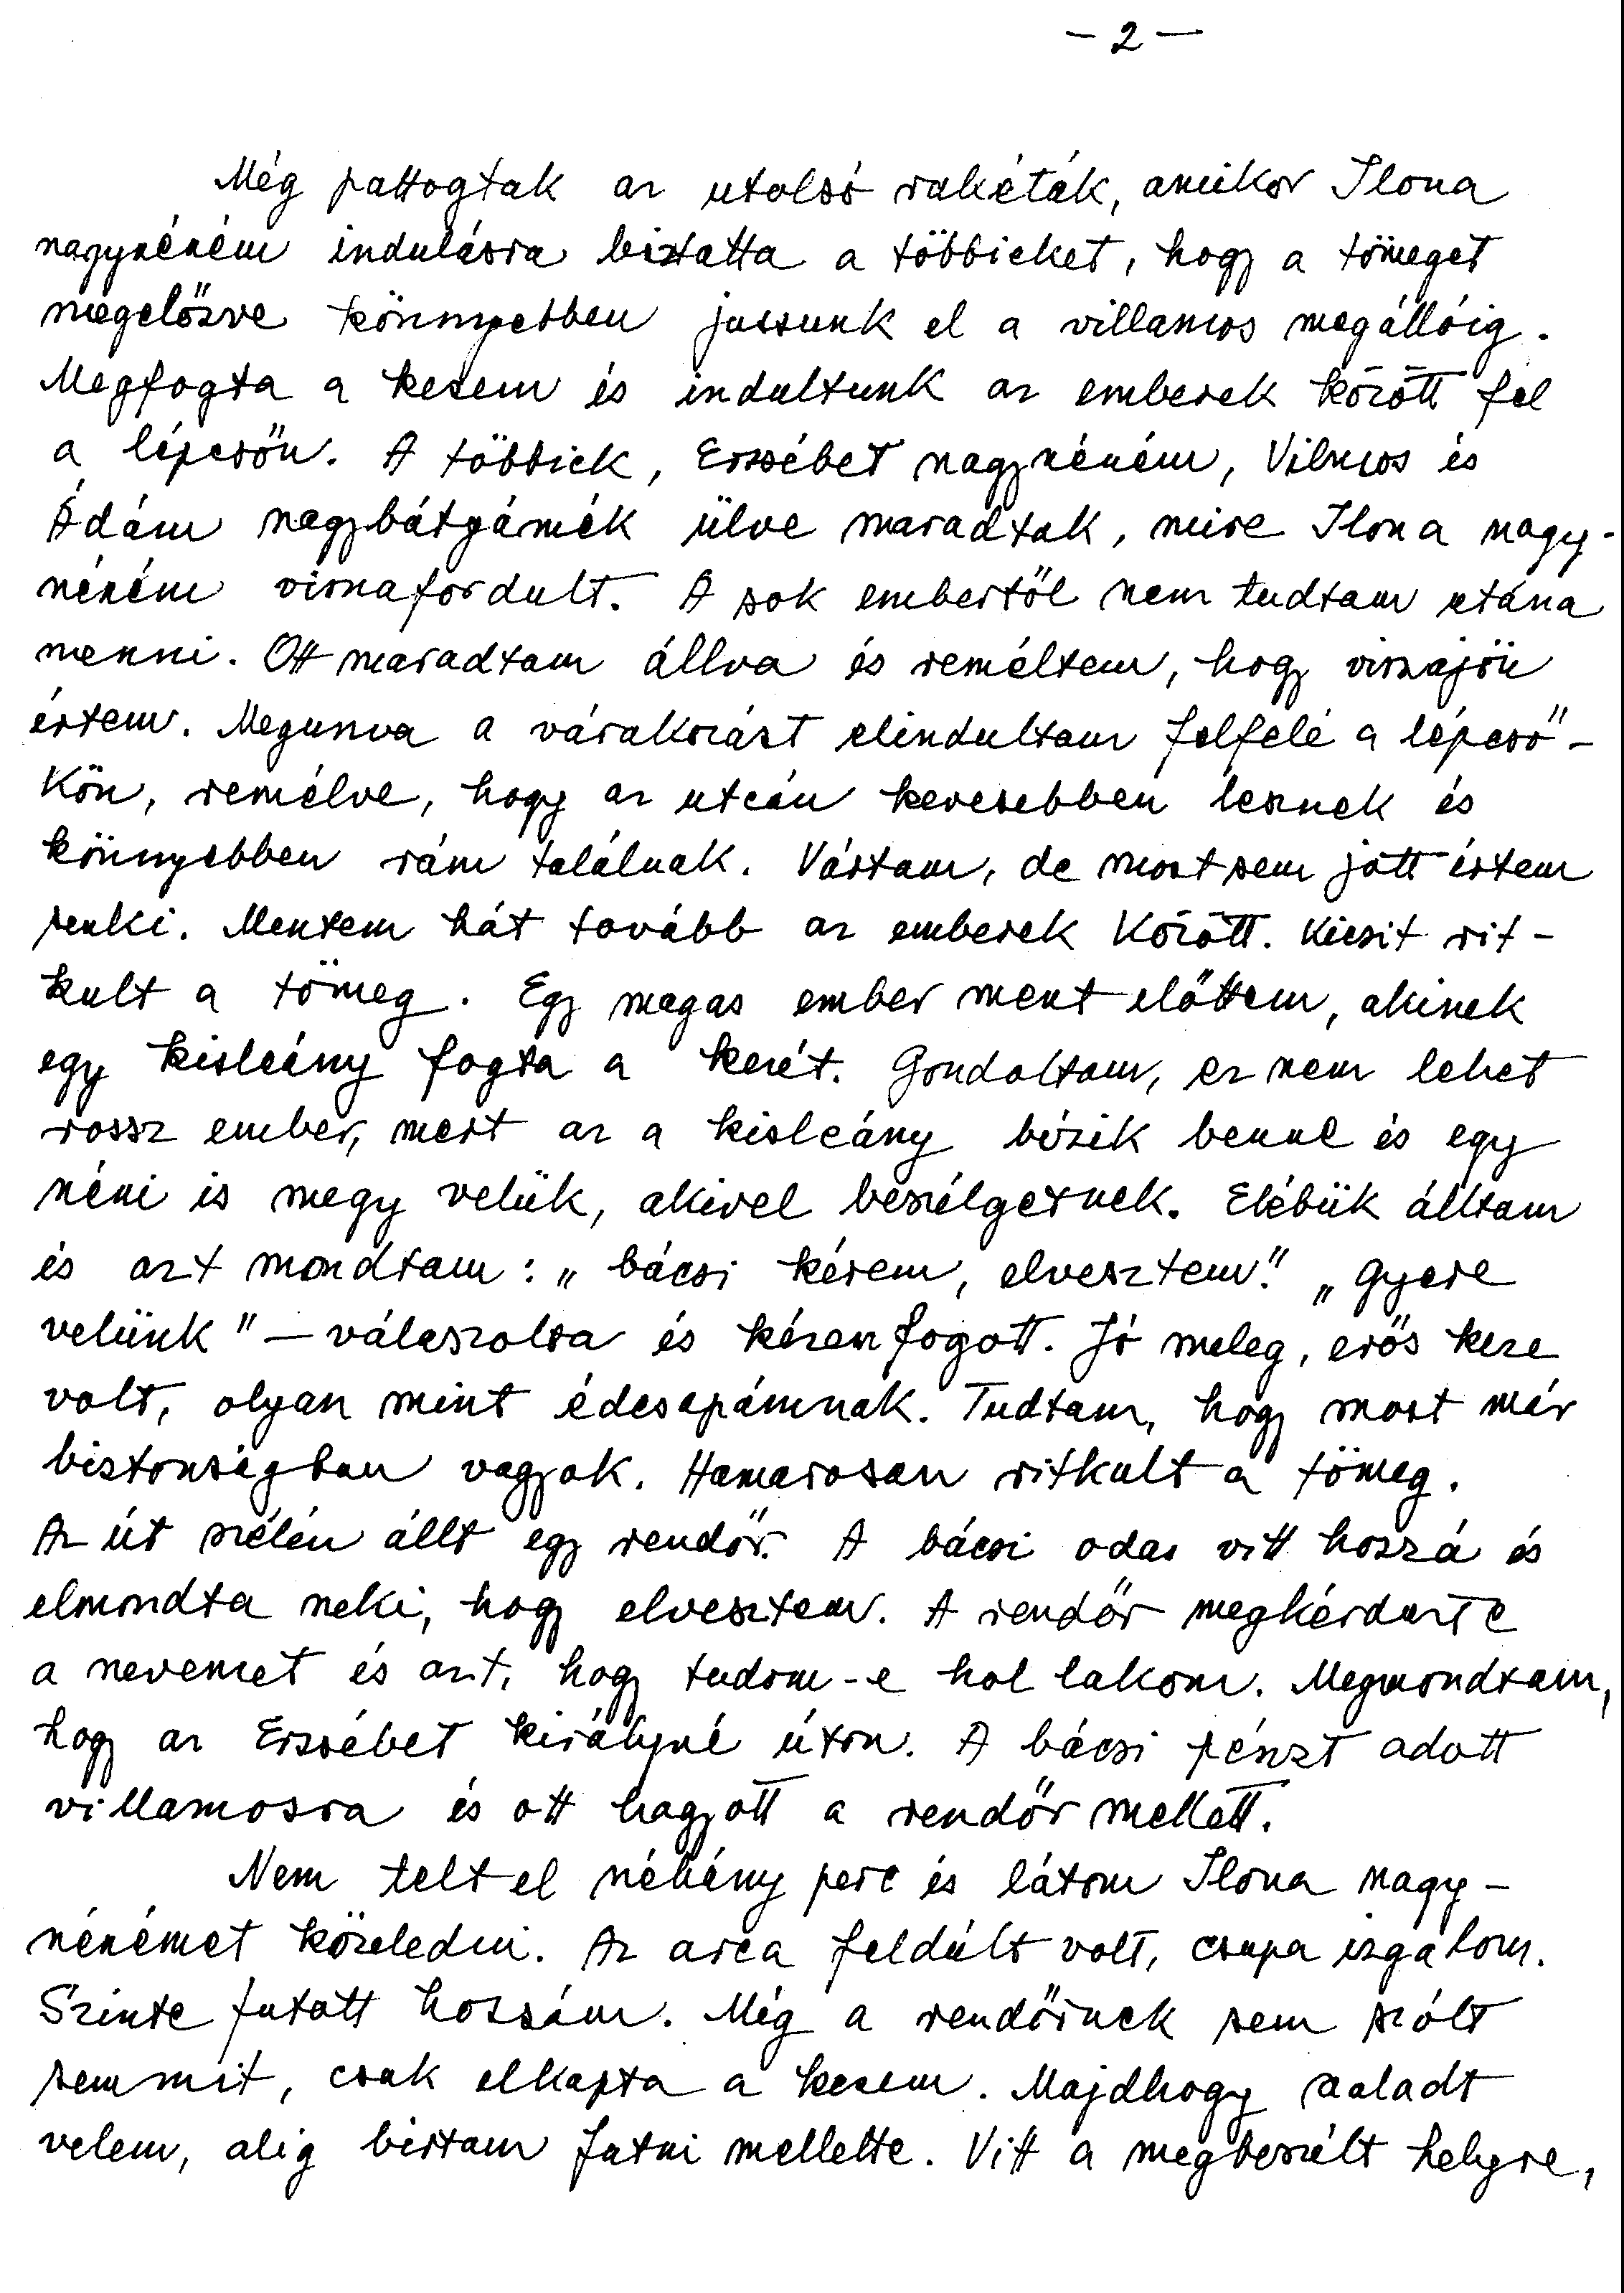 – 2 –
Még pattogtak az utolsó rakéták, amikor Ilona
nagynéném indulásra biztatta a többieket, hogy a tömeget
megelőzve könnyebben jussunk el a villamos megállóig.
Megfogta a kezem és indultunk az emberek között fel
a lépcsőn. A többiek, Erzsébet nagynéném, Vilmos és
Ádám nagybátyámék ülve maradtak, mire Ilona nagy-
néném visszafordult. A sok embertől nem tudtam utána
menni. Ott maradtam állva és reméltem, hogy visszajön
értem. Megunva a várakozást elindultam felfelé a lépcső-
kön, remélve, hogy az utcán kevesebben lesznek és
könnyebben rám találnak. Vártam, de most sem jött értem
senki. Mentem hát tovább az emberek között. Kicsit rit-
kult a tömeg. Egy magas ember ment előttem, akinek
egy kisleány fogta a kezét. Gondoltam, ez nem lehet
rossz ember, mert az a kisleány bízik benne és egy
néni is megy velük, akivel beszélgetnek. Elébük álltam
és azt mondtam: „bácsi kérem, elvesztem." „Gyere
velünk" – válaszolta és kézenfogott. Jó meleg, erős keze
volt, olyan mint édesapámnak. Tudtam, hogy most már
biztonságban vagyok. Hamarosan ritkult a tömeg.
Az út szélén állt egy rendőr. A bácsi oda vitt hozzá és
elmondta neki, hogy elvesztem. A rendőr megkérdezte
a nevemet és azt, hogy tudom-e hol lakom. Megmondtam,
hogy az Erzsébet királyné úton. A bácsi pénzt adott
villamosra és ott hagyott a rendőr mellett.
Nem telt el néhány perc és látom Ilona nagy-
nénémet közeledni. Az arca feldúlt volt, csupa izgalom.
Szinte futott hozzám. Még a rendőrnek sem szólt
semmit, csak elkapta a kezem. Majdhogy szaladt
velem, alig bírtam futni mellette. Vitt a megbeszélt helyre,